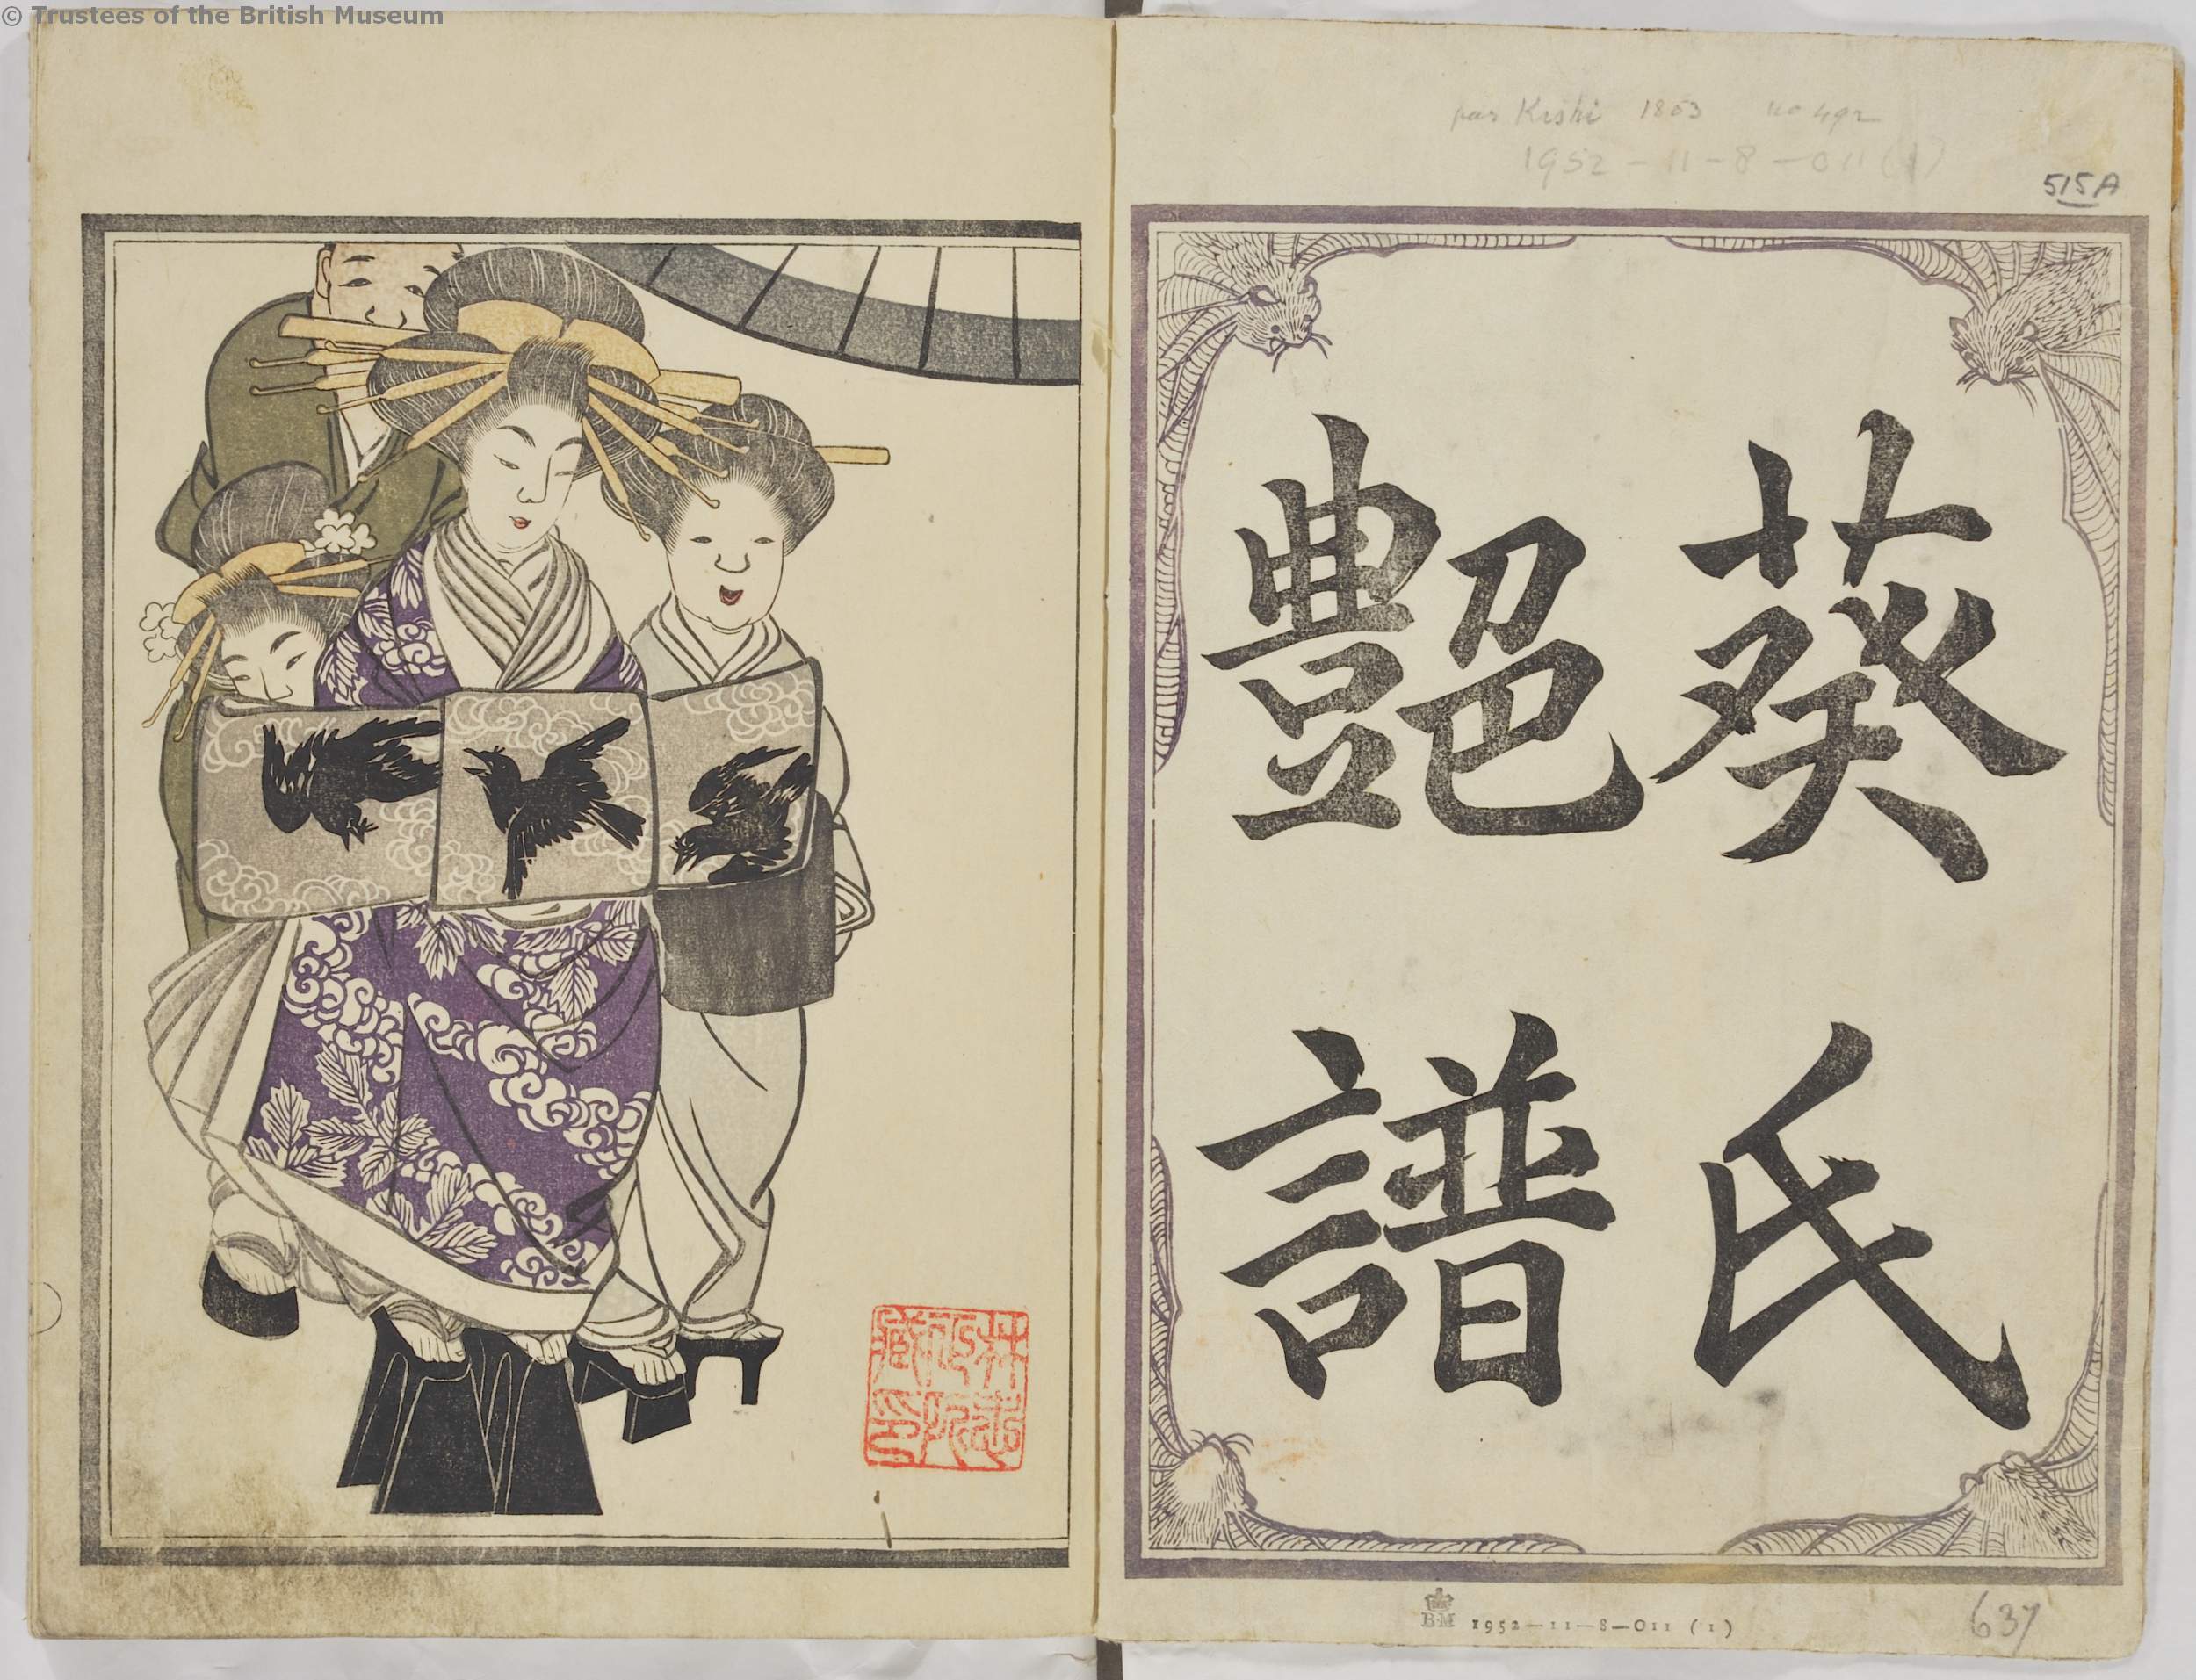 © Trustees of the British Museum
par Kishi 1803 no 492
1952-11-8-011 (1)
515A
葵氏
艶譜
BM 1952-11-8-011 (1)
637